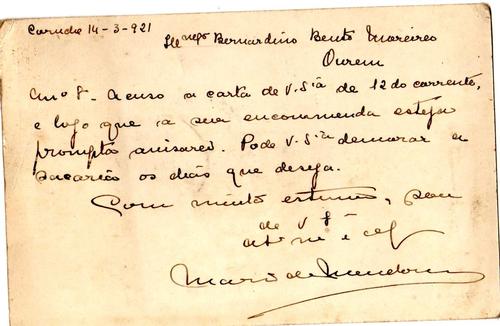 14-3-921
Bernardino Bento Moreira
Ourem
Am.º Sr. Acuso a carta de V. S.ia de 12 do corrente,
e logo que a sua encommenda esteja
prompta avisarei. Pode V. S.ia demorar a
sacaria os dias que deseja.
Com muita estima, sou
de V S.ia
at.º
Mario de Mendonça